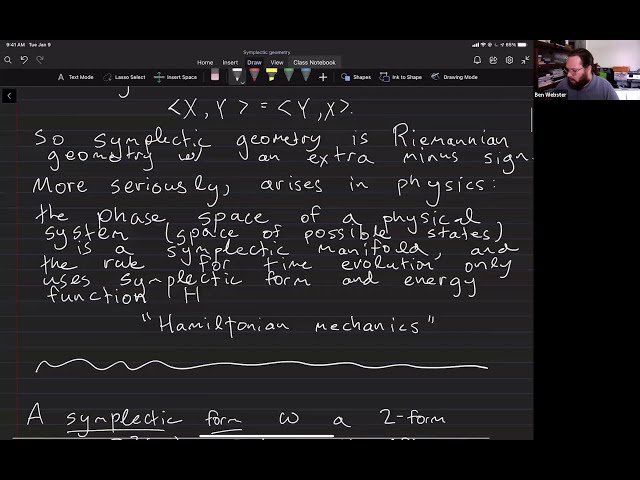 9:41 AM Tue Jan 9
65%
Symplectic geometry
Home Insert Draw View Class Notebook
Text Mode Lasso Select Insert Space Shapes Ink to Shape Drawing Mode
Ben Webster
<X, Y> = <Y, X>.
So symplectic geometry is Riemannian
geometry w/ an extra minus sign.
More seriously, arises in physics:
the phase space of a physical
system (space of possible states)
is a symplectic manifold, and
the rule for time evolution only
uses symplectic form and energy
function H
"Hamiltonian mechanics"
A symplectic form ω a 2-form